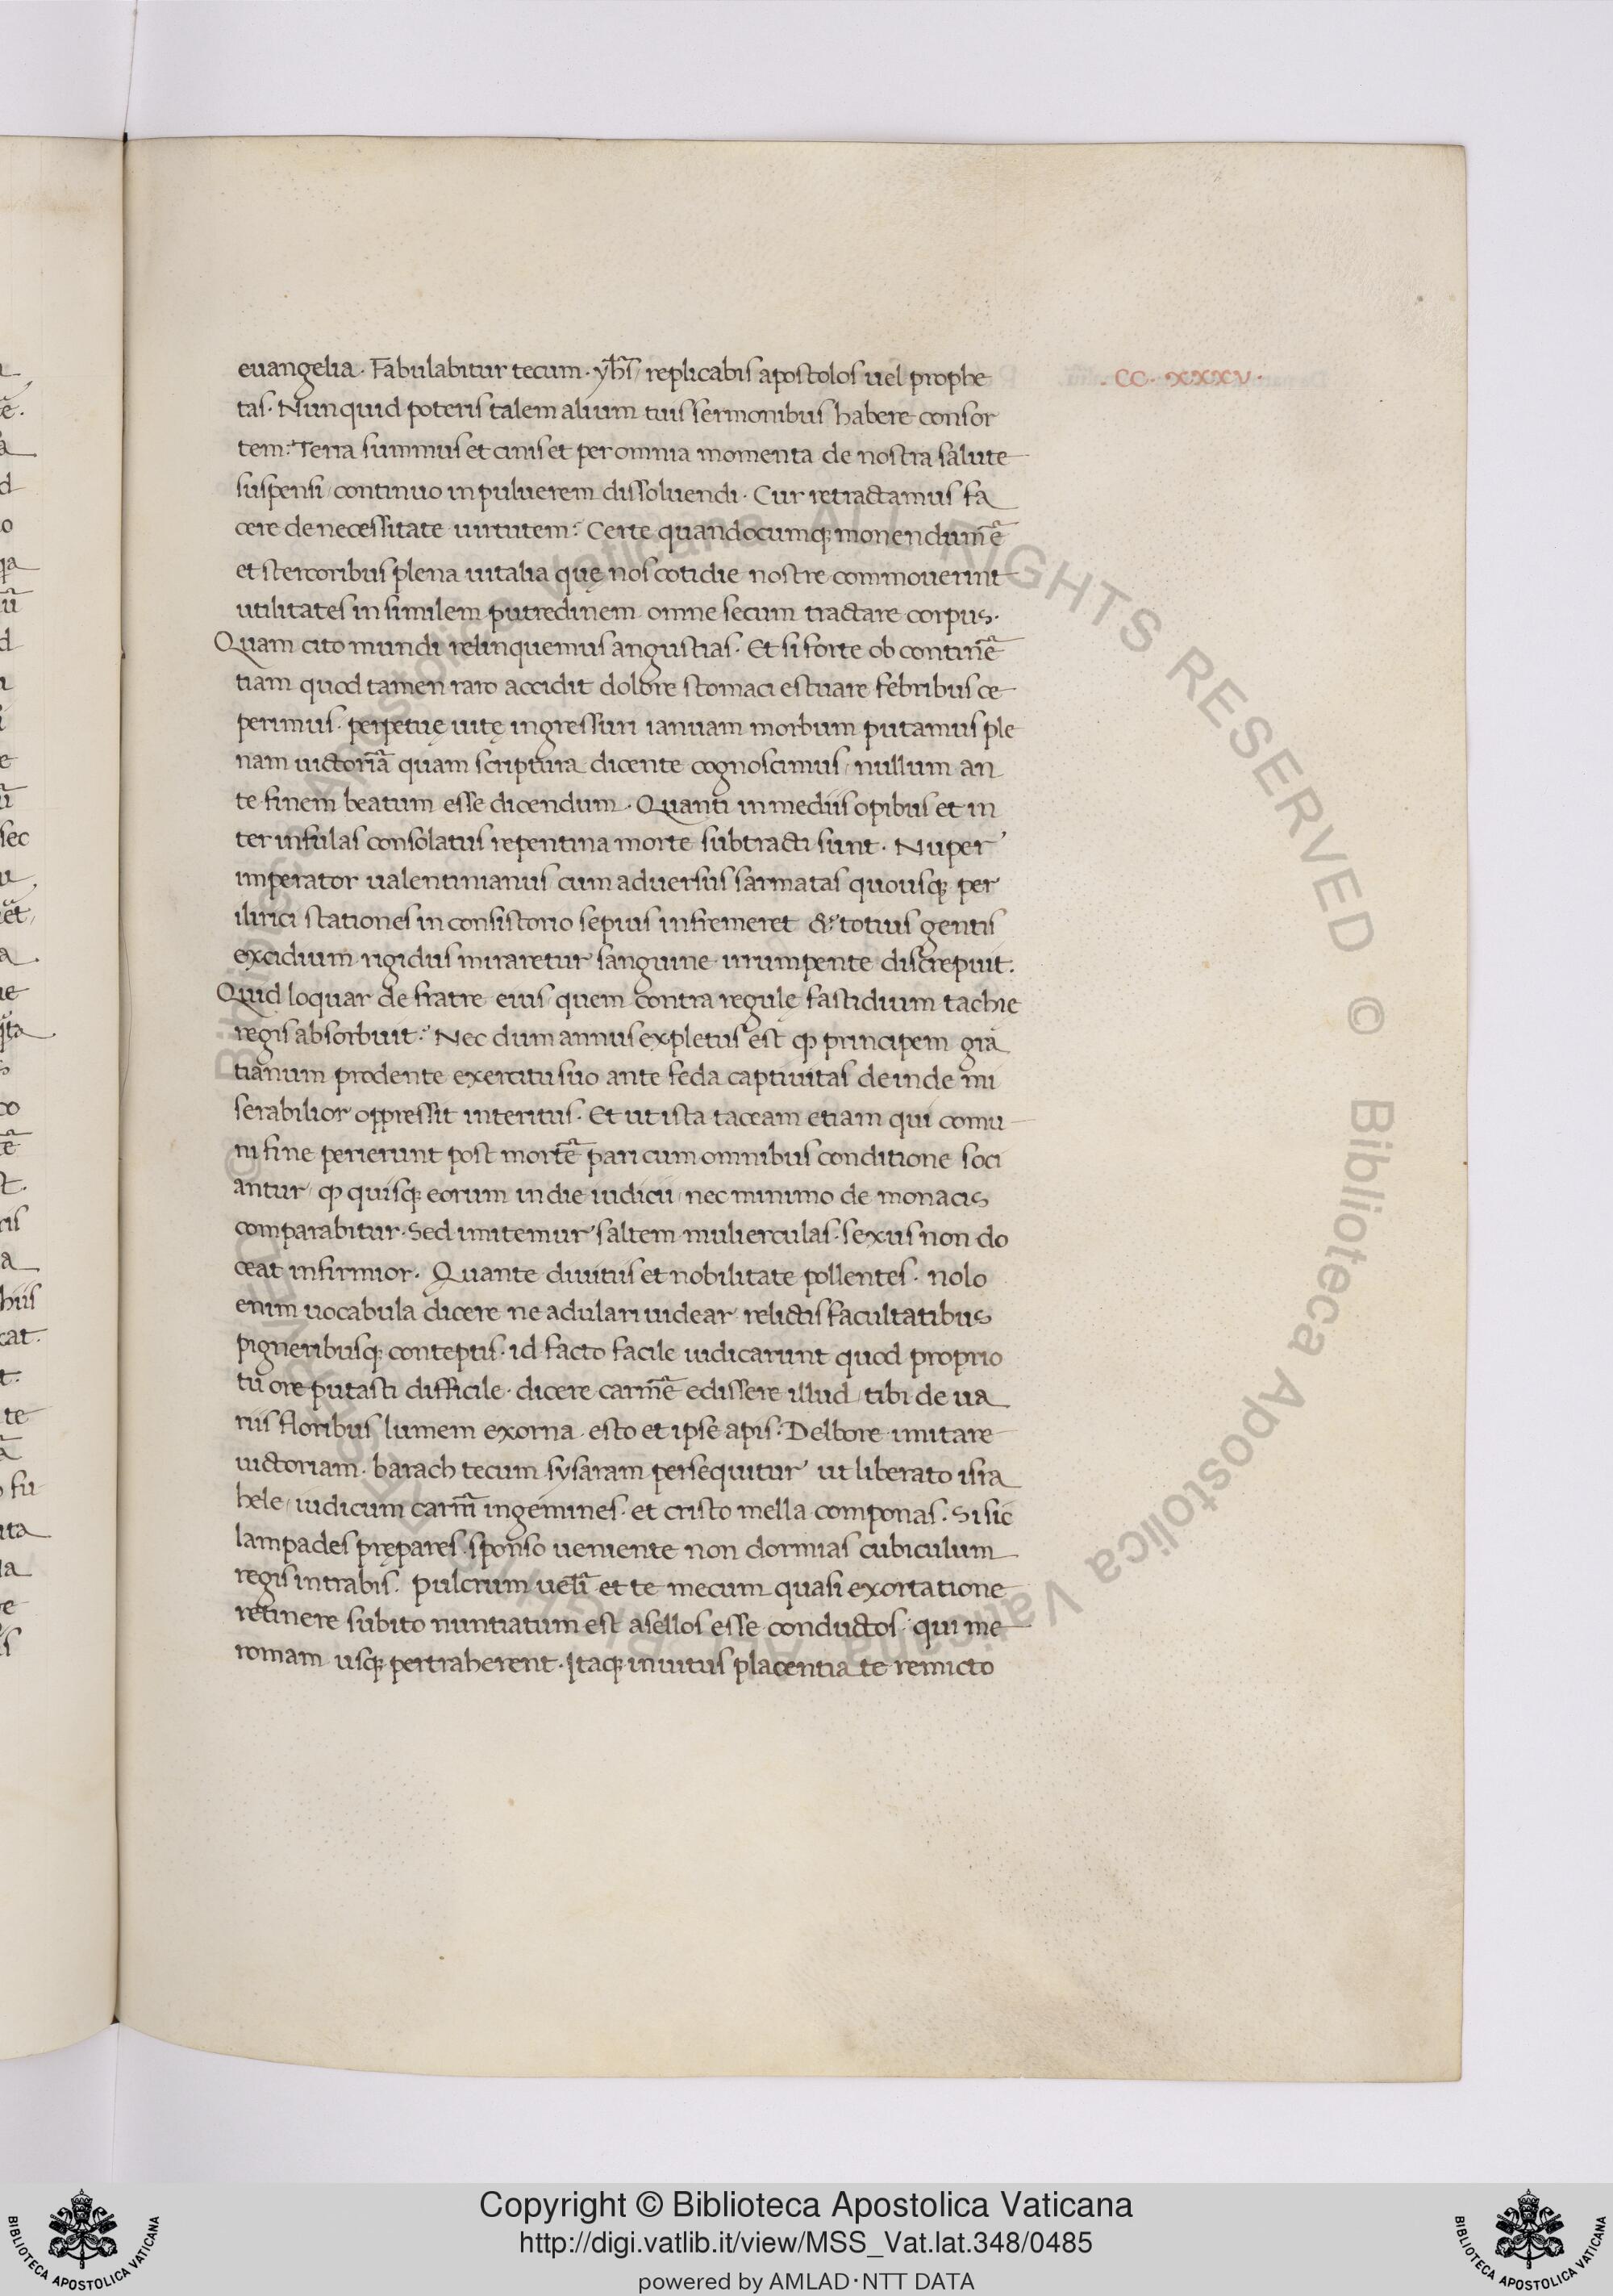 euangelia. Fabulabitur tecum. yhs̄ / replicabis apostolos uel prophe
.CC. XXXV.
tas. Nunquid poteris talem alium tuis sermonibus habere consor
tem: Terra summus et cinis et per omnia momenta de nostra salute
suspensi / continuo in puluerem dissoluendi. Cur retractamus fa
cere de necessitate uirtutem: Certe quandocumq; monendum ē
et stercoribus plena uitalia quę nos cotidie nostre commouerint
utilitates in similem putredinem omne secum tractare corpus.
Quam cito mundi relinquemus angustias. Et si forte ob continē
tiam quod tamen raro accidit dolore stomaci estuare febribus ce
perimus. perpetuę uitę ingressuri ianuam morbum putamus ple
nam uictoriā quam scriptura dicente cognoscimus / nullum an
te finem beatum esse dicendum. Quanti in mediis opibus et in
ter infulas consolatus repentina morte subtracti sunt. Nuper
imperator ualentinianus cum aduersus sarmatas quousq; per
ilirici stationes in consistorio sepius infremeret &: totius gentis
excidium rigidus miraretur sanguine irrumpente discrepuit.
Quid loquar de fratre eius quem contra regulę fastidium tachie
regis absorbuit: Nec dum annus expletus est ꝙ principem gra
tianum prodente exercitu suo ante feda captiuitas deinde mi
serabilior oppressit interitus. Et ut ista taceam etiam qui comu
ni fine perierunt post mortē pari cum omnibus conditione soci
antur / ꝙ quisq; eorum in die iudicii / nec minimo de monacis
comparabitur. Sed imitemur saltem mulierculas. sexus non do
ceat infirmior. Quante diuitiis et nobilitate pollentes. nolo
enim uocabula dicere ne adulari uidear relictis facultatibus
pigneribusq; conteptis. id facto facile iudicarunt quod proprio
tu ore putasti difficile. dicere carmē edissere illud / tibi de ua
riis floribus lumem exorna. esto et ipse apis: Delbore imitare
uictoriam. barach tecum sysaram persequitur ut liberato isra
hele / iudicum carm̄ ingemines. et cristo mella componas. Si sic
lampades prępares. sponso ueniente non dormias cubiculum
regis intrabis. pulcrum uel̄i et te mecum quasi exortatione
retinere subito nuntiatum est asellos esse conductos. qui me
romam usq; pertraherent. Itaq; inuitus placentia te remicto
Copyright © Biblioteca Apostolica Vaticana
http://digi.vatlib.it/view/MSS_Vat.lat.348/0485
powered by AMLAD·NTT DATA